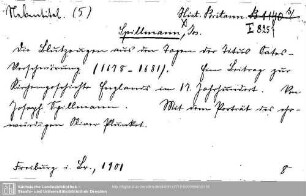 Nebentitel. (5) Hist. Britann. B 1140
I 8954
Spillmann, Jos.
Die Blutzeugen aus den Tagen der Titus Oates-
Verschwörung (1678-1681). Ein Beitrag zur
Kirchengeschichte Englands im 17. Jahrhundert. Von
Joseph Spillmann. Mit dem Porträt des ehr-
würdigen Oliver Plunket.
Freiburg i. Br., 1901 8
Sächsische Landesbibliothek -
Staats- und Universitätsbibliothek Dresden